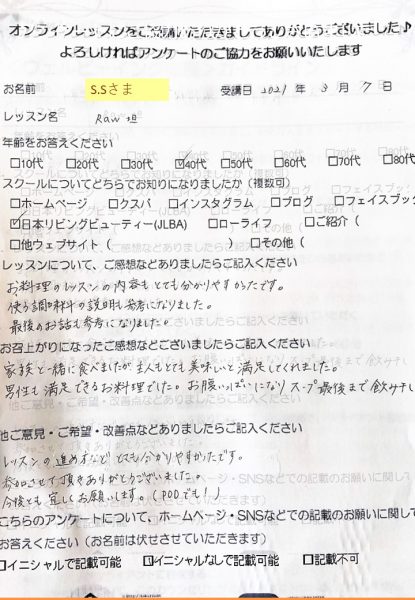 オンラインレッスンをご受講いただきましてありがとうございました♪
よろしければアンケートのご協力をお願いいたします
お名前 S.Sさま 受講日 2021年 3月 7日
レッスン名 Raw 担
年齢をお答えください
□10代 □20代 □30代 ☑40代 □50代 □60代 □70代 □80代
スクールについてどちらでお知りになりましたか（複数可）
□ホームページ □クスパ □インスタグラム □ブログ □フェイスブッ
☑日本リビングビューティー(JLBA) □ローライフ □ご紹介（
□他ウェブサイト（ ）□その他（
レッスンについて、ご感想などありましたらご記入ください
お料理のレッスンの内容もとても分かりやすかったです。
使う調味料の説明も参考になりました。
最後のお話も参考になりました。
お召上がりになったご感想などありましたらご記入ください
家族と一緒に食べましたが、とても美味しいと満足してくれました。
男性も満足できるお料理でした。お腹いっぱいになりスープ最後まで飲み干し
他ご意見・ご希望・改善点などありましたらご記入ください
レッスンの進め方など とても分かりやすかたです。
参加させて頂きありがとうございました。
今後とも宜しくお願いします。（PODでも！）
こちらのアンケートについて、ホームページ・SNSなどでの記載のお願いに関して
お答えください（お名前は伏せさせていただきます）
□イニシャルで記載可能 ☑イニシャルなしで記載可能 □記載不可